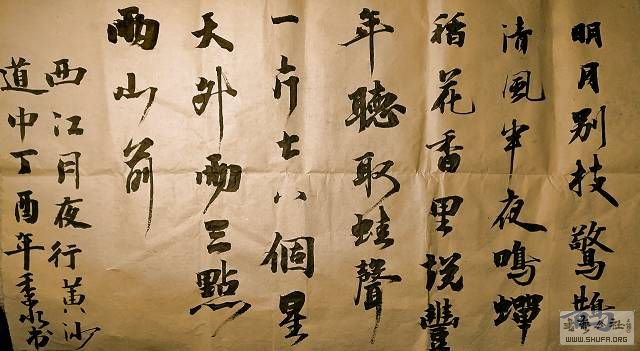 明月别枝驚鵲
清風半夜鳴蟬
稻花香里説豐
年聽取蛙聲
一片七八個星
天外兩三點
雨山前
西江月夜行黃沙
道中丁酉年
WWW.SHUFA.ORG